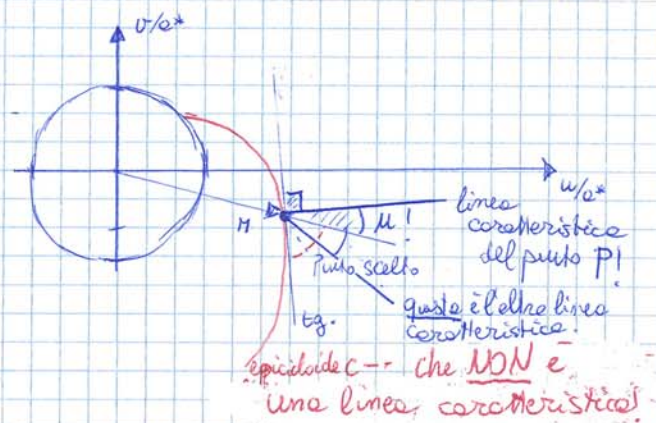 v/a*
u/a*
M
μ!
linea
caratteristica
del punto P!
Punto scelto
questa è l'altra linea
caratteristica!
tg.
epicicloide C-- che NON è
una linea caratteristica!